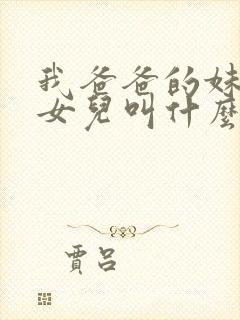 我爸爸的妹
女兒叫什麼
賈呂